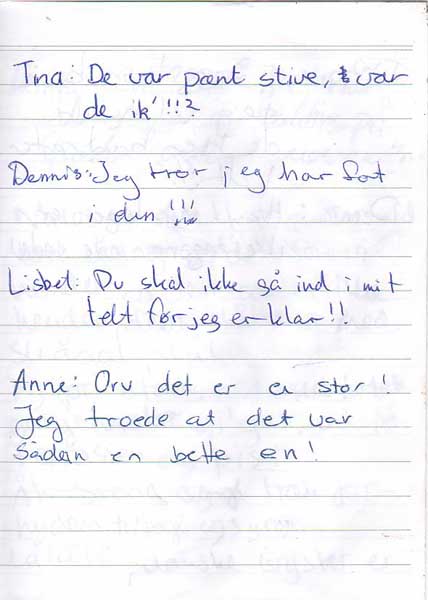 Tina: De var pænt stive, var
de ik' !!!?
Dennis: Jeg tror jeg har fat
i den !!!
Lisbet: Du skal ikke gå ind i mit
telt før jeg er klar!!
Anne: Orv det er en stor!
Jeg troede at det var
Sådan en bette en!